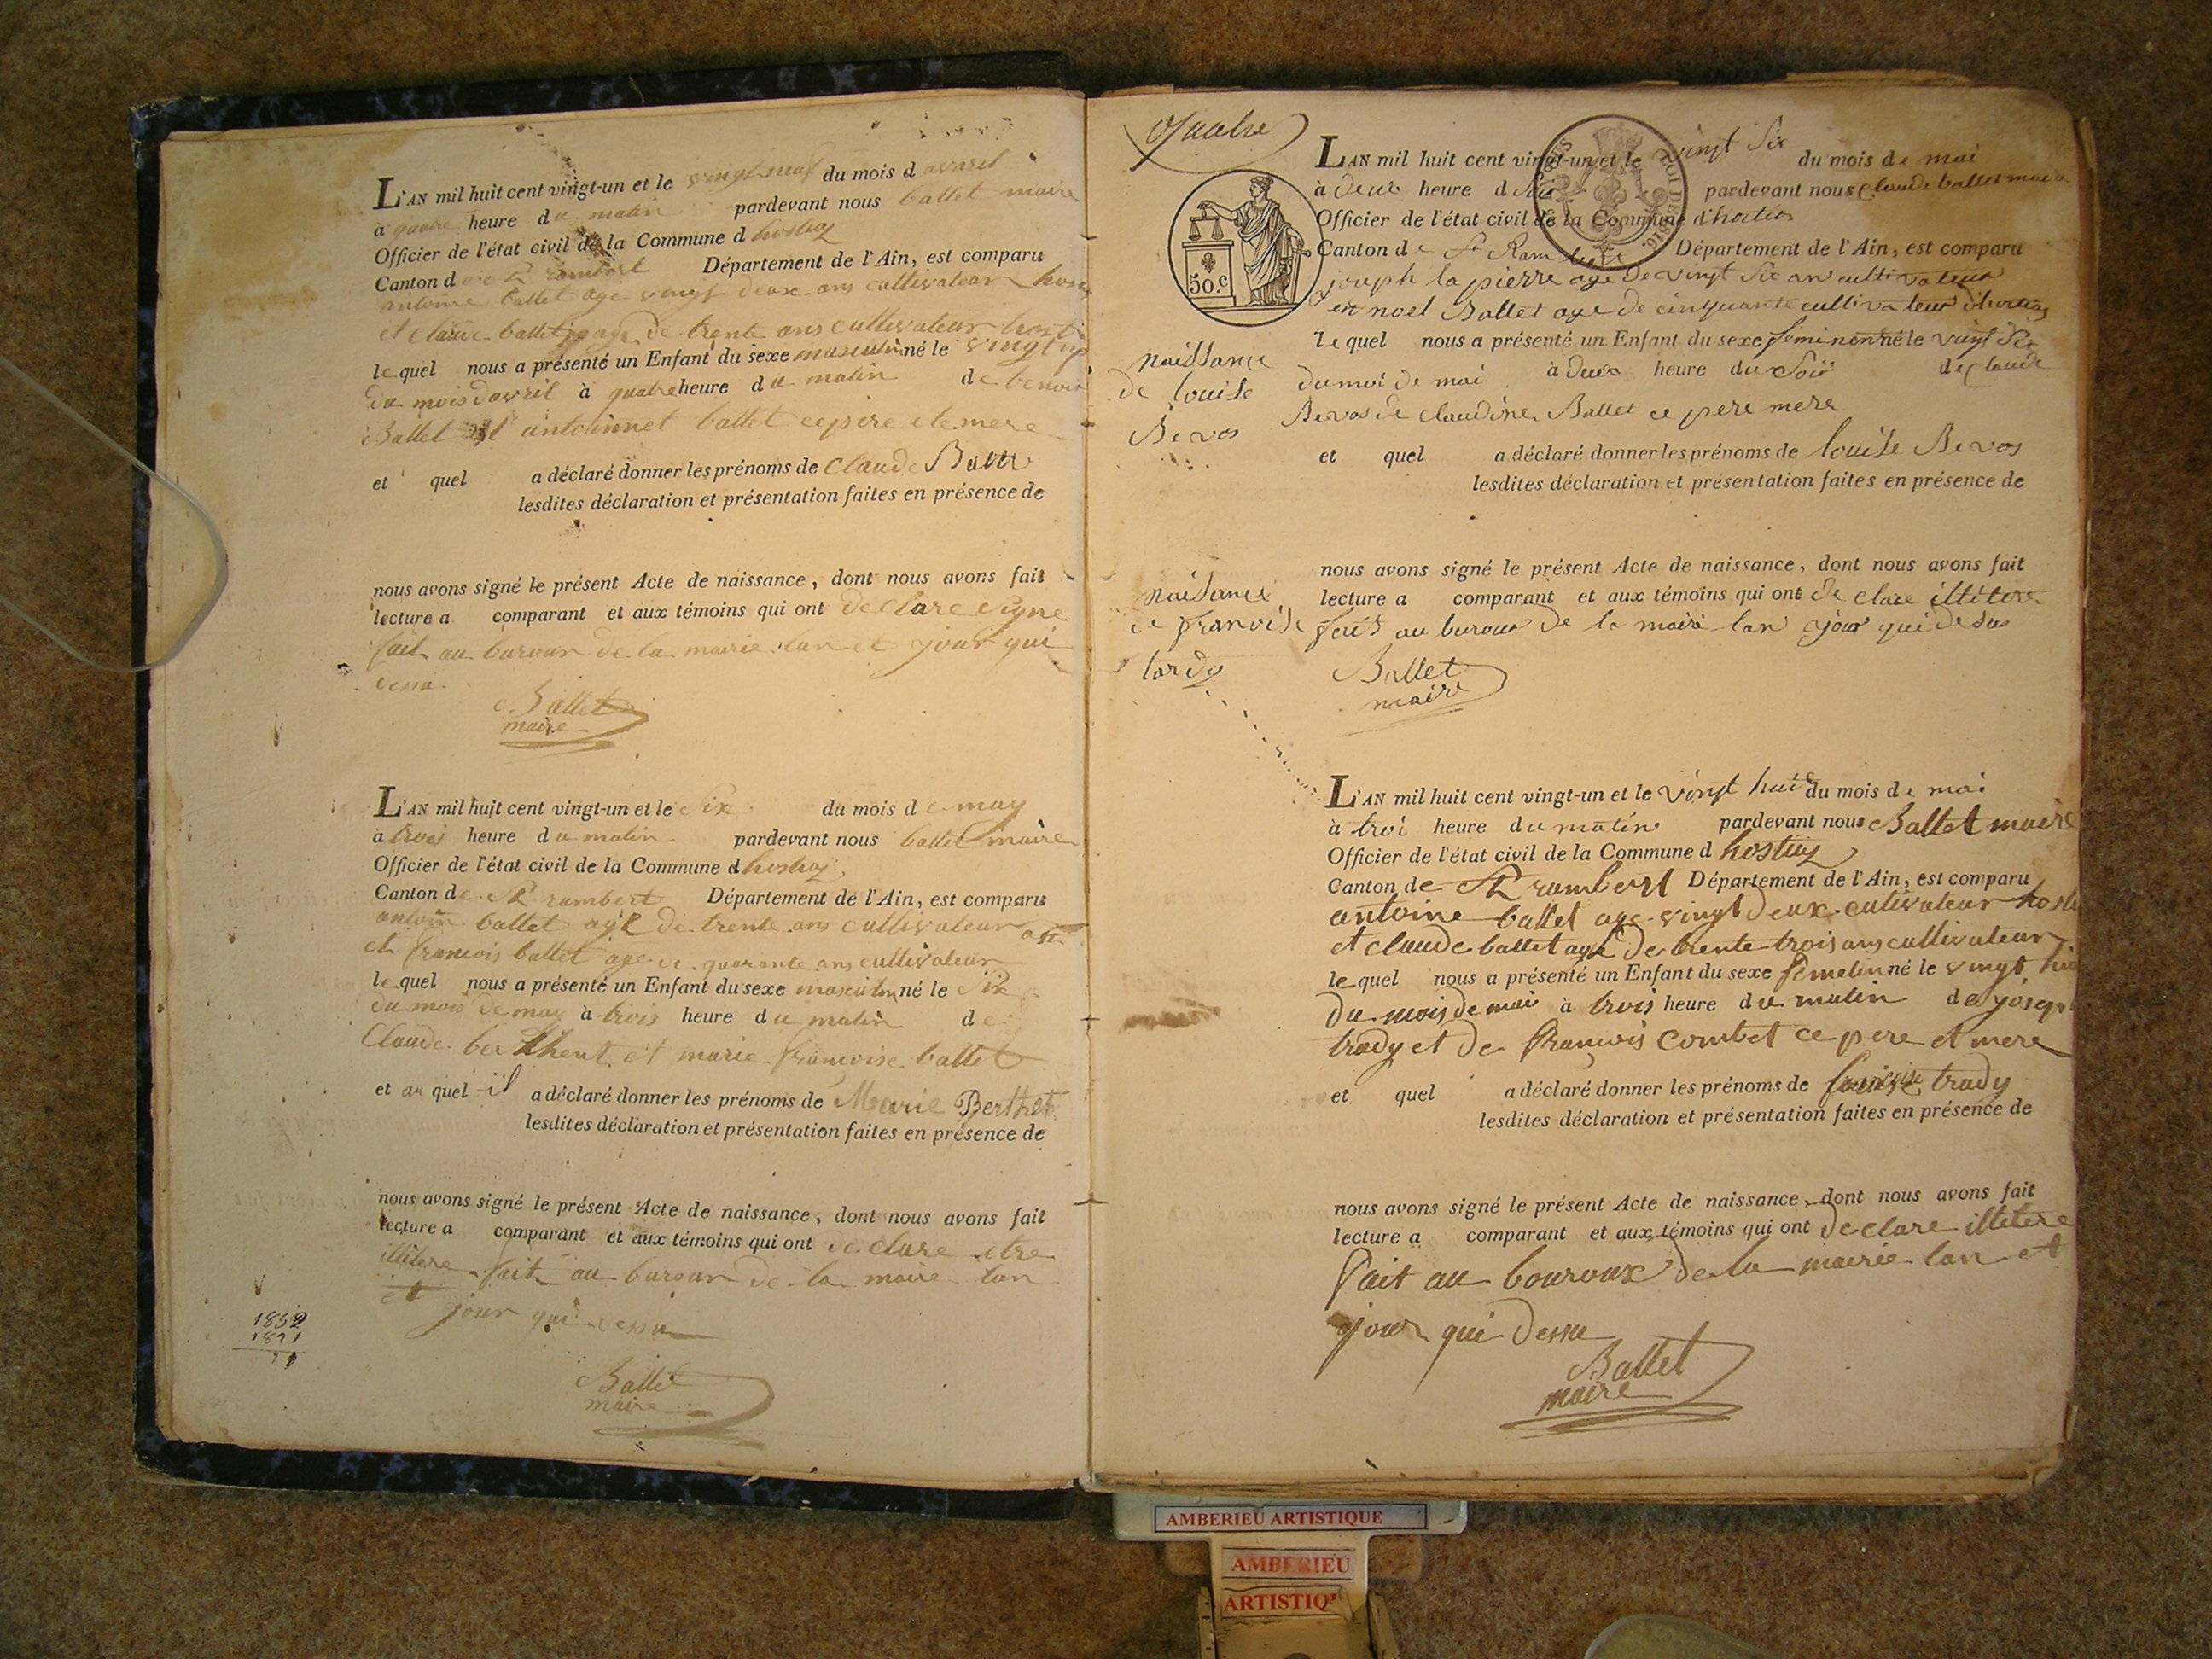 L'AN mil huit cent vingt-un et le vingt neuf du mois d avaril
à quatre heure du matin pardevant nous ballet maire
Officier de l'état civil de la Commune d hostiaz
Canton de St rambert Département de l'Ain, est comparu
antoine ballet age vengt deux ans cultivateur
et claude ballet age de trente ans cultivateur
lequel nous a présenté un Enfant du sexe masculin né le
du mois d'avril à quatre heure du matin de benoit
Ballet et antoinnet ballet ce pere ete mere
et quel a déclaré donner les prénoms de Claude
lesdites déclaration et présentation faites en présence de
nous avons signé le présent Acte de naissance, dont nous avons fait
lecture a comparant et aux témoins qui ont declare signe
fait au burour de la mairie lan et jour qui
dessu
C. Ballet
maire
L'AN mil huit cent vingt-un et le Six du mois de may
à trois heure du matin pardevant nous ballet maire
Officier de l'état civil de la Commune d hostiaz
Canton de St rambert Département de l'Ain, est comparu
antoin ballet age de trente ans cultivateur
et francois ballet age de quarante ans cultivateur
lequel nous a présenté un Enfant du sexe masculin né le Six
du mois de may à trois heure du matin de
Claude et marie francoise ballet
et au quel il a déclaré donner les prénoms de Marie Berthet
lesdites déclaration et présentation faites en présence de
nous avons signé le présent Acte de naissance, dont nous avons fait
lecture a comparant et aux témoins qui ont declare etre
illitere fait au burour de la maire lan
et jour qui dessu
Ballet
maire
1821
Quatre
L'AN mil huit cent vingt-un et le vingt Six du mois de mai
à deux heure d Soir pardevant nous Claude ballet
Officier de l'état civil de la Commune d'
Canton de St Rambert Département de l'Ain, est comparu
joseph la pierre age de vingt Six an cultivateur
et noel Ballet age de cinquante cultivateur
lequel nous a présenté un Enfant du sexe feminen né le vingt Six
du moi de mai à deux heure du Soir de Claude
Bevos de Claudine Ballet ce pere mere
et quel a déclaré donner les prénoms de louise Bevos
lesdites déclaration et présentation faites en présence de
50.c
naissance
de louise
Bevos
nous avons signé le présent Acte de naissance, dont nous avons fait
lecture a comparant et aux témoins qui ont de clare illitere
fait au burour de la mairi lan ajour qui desus
Ballet
maire
naisance
de franoise
tardy
L'AN mil huit cent vingt-un et le vingt huit du mois de mai
à troi heure du matin pardevant nous Ballet maire
Officier de l'état civil de la Commune d hostiaz
Canton de St rambert Département de l'Ain, est comparu
antoine ballet age vingt deux cultivateur
et claude ballet age de trente trois ans cultivateur
lequel nous a présenté un Enfant du sexe femelin né le vingt
du mois de mai à trois heure du matin de joseph
trady et de francois Combet ce pere et mere
et quel a déclaré donner les prénoms de trady
lesdites déclaration et présentation faites en présence de
nous avons signé le présent Acte de naissance, dont nous avons fait
lecture a comparant et aux témoins qui ont declare illitere
fait au bouroux de la mairie lan et
ajour qui dessu
Ballet
maire
AMBERIEU ARTISTIQUE
AMBERIEU
ARTISTIQ